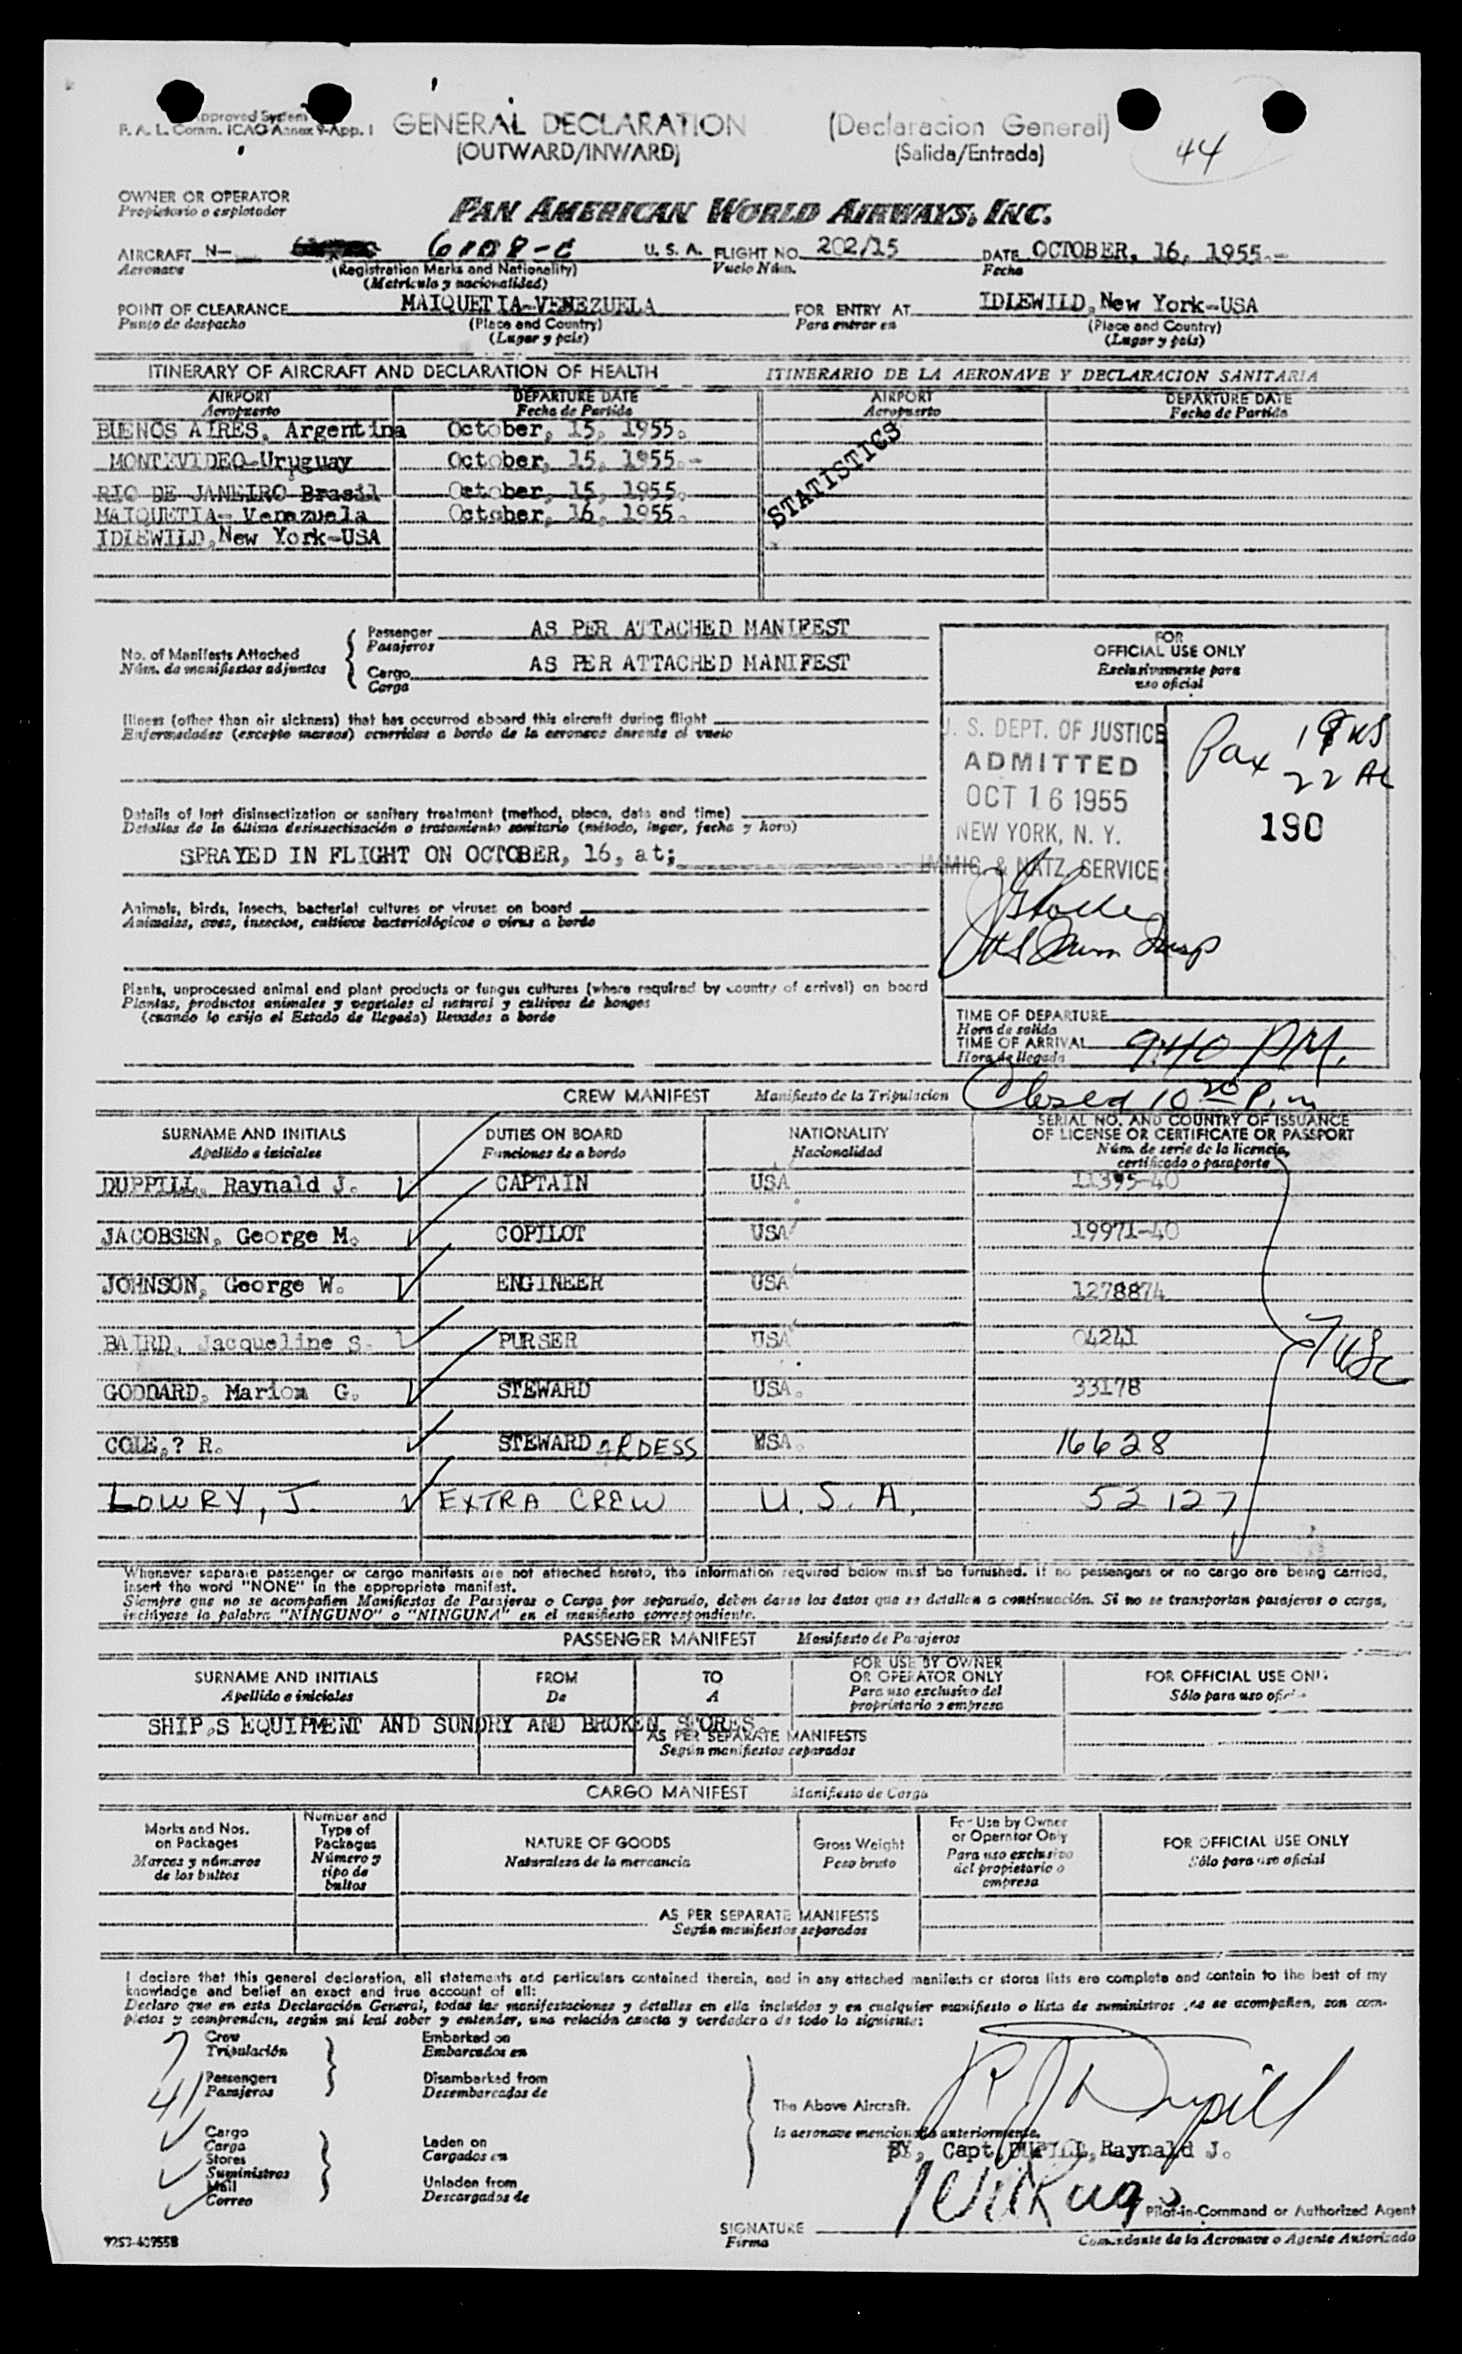 Approved System
F. A. L. Comm. ICAO Annex 9-App. 1
GENERAL DECLARATION
(OUTWARD/INWARD)
(Declaracion General)
(Salida/Entrada)
44
OWNER OR OPERATOR
Propietario o explotador
PAN AMERICAN WORLD AIRWAYS, INC.
AIRCRAFT N- 6108-C U. S. A. FLIGHT NO. 202/15 DATE OCTOBER, 16, 1955.-
Aeronave (Registration Marks and Nationality) Vuelo Núm. Fecha
(Matricula y nacionalidad)
POINT OF CLEARANCE MAIQUETIA-VENEZUELA FOR ENTRY AT IDLEWILD, New York-USA
Punto de despacho (Place and Country) Para entrar en (Place and Country)
(Lugar y país) (Lugar y país)
ITINERARY OF AIRCRAFT AND DECLARATION OF HEALTH ITINERARIO DE LA AERONAVE Y DECLARACION SANITARIA
AIRPORT DEPARTURE DATE AIRPORT DEPARTURE DATE
Aeropuerto Fecha de Partida Aeropuerto Fecha de Partida
BUENOS AIRES, Argentina October, 15, 1955.
MONTEVIDEO-Uruguay October, 15, 1955.-
RIO DE JANEIRO Brasil October, 15, 1955.
MAIQUETIA- Venezuela October, 16, 1955.
IDLEWILD, New York-USA
STATISTICS
No. of Manifests Attached
Núm. de manifiestos adjuntos
Passenger AS PER ATTACHED MANIFEST
Pasajeros
Cargo AS PER ATTACHED MANIFEST
Carga
FOR
OFFICIAL USE ONLY
Exclusivamente para
uso oficial
Illness (other than air sickness) that has occurred aboard this aircraft during flight
Enfermedades (excepto mareos) ocurridas a bordo de la aeronave durante el vuelo
U. S. DEPT. OF JUSTICE
ADMITTED
OCT 16 1955
NEW YORK, N. Y.
IMMIG. & NATZ. SERVICE
Pax 19 US
22 AL
190
Details of last disinsectization or sanitary treatment (method, place, date and time)
Detalles de la última desinsectización o tratamiento sanitario (método, lugar, fecha y hora)
SPRAYED IN FLIGHT ON OCTOBER, 16, at;
Animals, birds, insects, bacterial cultures or viruses on board
Animales, aves, insectos, cultivos bacteriológicos o virus a bordo
Plants, unprocessed animal and plant products or fungus cultures (where required by country of arrival) on board
Plantas, productos animales y vegetales al natural y cultivos de hongos
(cuando lo exija el Estado de llegada) llevados a bordo
TIME OF DEPARTURE
Hora de salida
TIME OF ARRIVAL 9:40 PM.
Hora de llegada
Closed 10 20 P.m
CREW MANIFEST Manifiesto de la Tripulacion
SURNAME AND INITIALS DUTIES ON BOARD NATIONALITY SERIAL NO. AND COUNTRY OF ISSUANCE
OF LICENSE OR CERTIFICATE OR PASSPORT
Apellido e iniciales Funciones de a bordo Nacionalidad Núm. de serie de la licencia,
certificado o pasaporte
DUPPILL, Raynald J. CAPTAIN USA 11395-40
JACOBSEN, George M. COPILOT USA 19971-40
JOHNSON, George W. ENGINEER USA 1278874
BAIRD, Jacqueline S. PURSER USA 04241
GODDARD, Marion G. STEWARD USA. 33178
COLE,? R. STEWARD ARDESS USA. 16628
LOWRY, J. EXTRA CREW U. S. A. 52127
7 USC
Whenever separate passenger or cargo manifests are not attached hereto, the information required below must be furnished. If no passengers or no cargo are being carried,
insert the word "NONE" in the appropriate manifest.
Siempre que no se acompañen Manifiestos de Pasajeros o Carga por separado, deben darse los datos que se detallan a continuación. Si no se transportan pasajeros o carga,
inclúyase la palabra "NINGUNO" o "NINGUNA" en el manifiesto correspondiente.
PASSENGER MANIFEST Manifiesto de Pasajeros
SURNAME AND INITIALS FROM TO FOR USE BY OWNER
OR OPERATOR ONLY FOR OFFICIAL USE ONLY
Apellido e iniciales De A Para uso exclusivo del
propietario o empresa Sólo para uso oficial
SHIP,S EQUIPMENT AND SUNDRY AND BROKEN STORES.
AS PER SEPARATE MANIFESTS
Según manifiestos separados
CARGO MANIFEST Manifiesto de Carga
Marks and Nos.
on Packages
Marcas y números
de los bultos
Number and
Type of
Packages
Número y
tipo de
bultos
NATURE OF GOODS
Naturaleza de la mercancia
Gross Weight
Peso bruto
For Use by Owner
or Operator Only
Para uso exclusivo
del propietario o
empresa
FOR OFFICIAL USE ONLY
Sólo para uso oficial
AS PER SEPARATE MANIFESTS
Según manifiestos separados
I declare that this general declaration, all statements and particulars contained therein, and in any attached manifests or stores lists are complete and contain to the best of my
knowledge and belief an exact and true account of all:
Declaro que en esta Declaración General, todas las manifestaciones y detalles en ella incluidos y en cualquier manifiesto o lista de suministros que se acompañen, son com-
pletos y comprenden, según mi leal saber y entender, una relación exacta y verdadera de todo lo siguiente:
7 Crew
Tripulación
41 Passengers
Pasajeros
Cargo
Carga
Stores
Suministros
Mail
Correo
Embarked on
Embarcados en
Disembarked from
Desembarcados de
Laden on
Cargados en
Unladen from
Descargados de
The Above Aircraft.
la aeronave mencionada anteriormente.
BY, Capt. DUPILL, Raynald J.
Pilot-in-Command or Authorized Agent
SIGNATURE
Firma
Comandante de la Aeronave o Agente Autorizado
9253-40955B